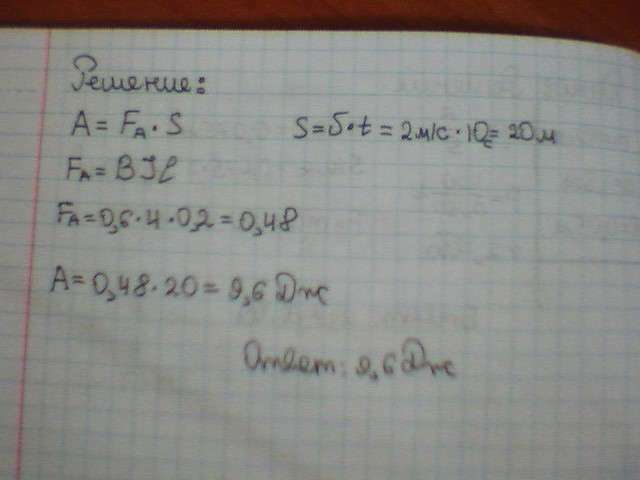 Решение:
A = Fₐ · S     S = υ · t = 2 м/с · 10с = 20 м
Fₐ = BIl
Fₐ = 0,6 · 4 · 0,2 = 0,48
A = 0,48 · 20 = 9,6 Дж
Ответ: 9,6 Дж